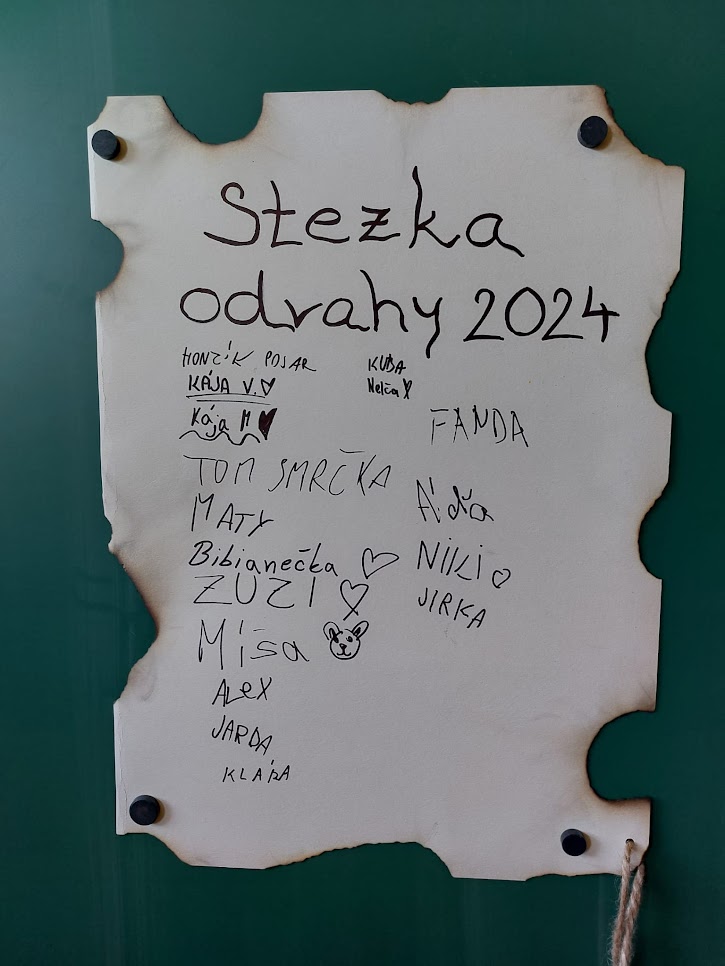 Stezka
odvahy 2024
HONZÍK POJAR
KÁJA V.
Kája M
TOM SMRČKA
MATY
Bibianečka
ZUZI
Míša
ALEX
JARDA
KLÁRA
KUBA
Nelča
FANDA
Áďa
NIKI
JIRKA